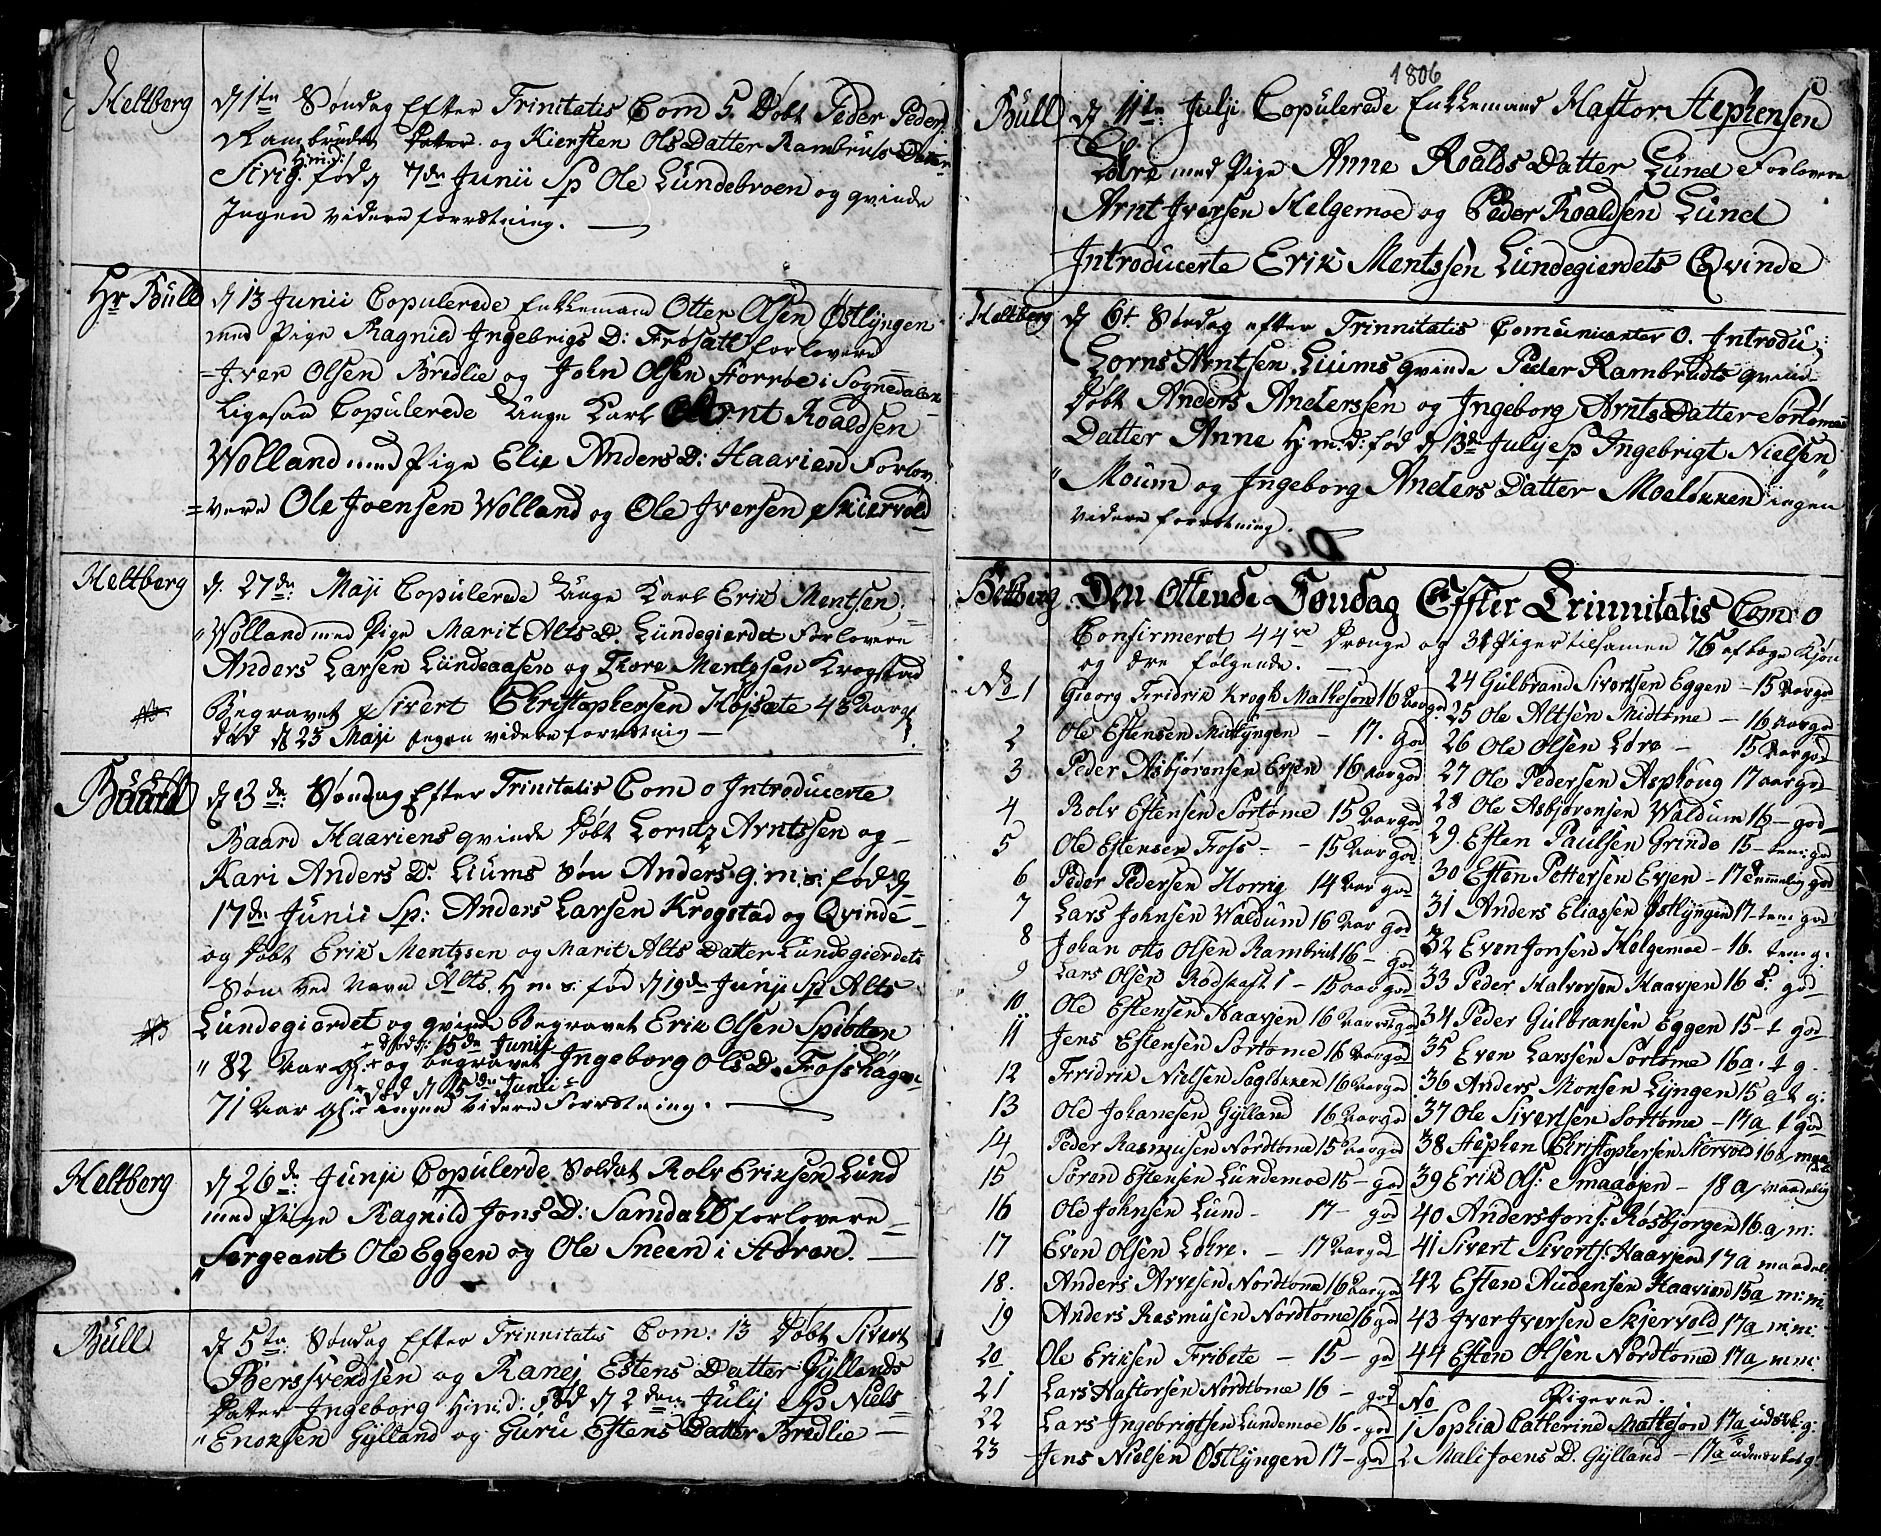 Heltberg
d 1te Søndag Efter Trinitatis Com 5. Døbt Peder Peders:
Rambrudts og Kiersten Ols Datter Rambruts Datter
Sirig H:m:d: fød d 7de Junii Sp Ole Lundebroen og qvinde
Ingen videre forrætning.
Hr Bull
d 13 Junii Copulerede Enkkemand Otter Olsen Østlyngen
med Pige Ragnild Ingebrigs D: Frøsatt forlovere
Iver Olsen Bredlie og John Olsen Forrøe i Sognedalen
Ligesaa Copulerede Unge Karl Arnt Roaldsen
Wolland med Pige Elie Anders D: Haavien Forlov
=vere Ole Joensen Wolland og Ole Iversen Skiervold
Heltberg
d. 27de: Maji Copulerede Unge Karl Erik Mentsen
Wolland med Pige Marit Alts D. Lundegierdet Forlovere
Anders Larsen Lundeaasen og Thore Mentzsen Krogstad
Begravet Sivert Christophersen Højsæte 48 Aarg
død d 23 Maji ingen videre forrætnig
Bull
d 3de: Søndag Efter Trinitatis Com 0 Introducerte
Baard Haaviens qvinde Døbt Lorntz Arntssen og
Kari Anders D. Liums Søn Anders H.m:s: fød d
17de Junii Sp: Anders Larsen Krogstad og Qvinde
og Døbt Erik Mentzsen og Marit Alts Datter Lundegierdets
Søn ved Navn Alts H m: s: fød d 19de Junji Sp Alts
Lundegierdet og qvinde Begravet Erik Olsen Spibiten
+ død d: 15de Junii
82 Aar G:+ og begravet Ingeborg Ols D. Frosshøgen
+ død d 15de Junii
71 Aar G:+ ingen videre Forrætning.
Heltberg
d 26de: Junji Copulerde Soldat Rolv Eriksen Lund
med Pige Ragnild Jons D: Samdahl forlovere
Sergeant Ole Eggen og Ole Sneen i Støren.
Bull
d 5te: Søndag Efter Trinnitatis Com: 13 Døbt Sivert
Berssvendsen og Ranej Estens Datter Gyllands
Datter Ingeborg H:m:d: Fød d 2den: July Sp Niels
Enoksen Gylland og Guru Estens Datter Bredlie
1806
Bull
d 11te: Julji Copulerede Enkkemand Haftor Stephensen
Løhre med Pige Anne Roalds Datter Lund Forlovere
Arnt Iversen Helgemoe og Peder Roaldsen Lund
Introducerte Erik Mentssen Lundegierdets Qvinde
Heltberg
d 6t. Søndag efter Trinnitatis Comunicanter 0. Introdu:
Lorns Arntsen Liums qvinde Peder Rambrudts qvind
Døbt Anders Anderssen og Ingeborg Arnts Datter Sørtømme
Datter Anne H:m:d: fød d 13de July Sp Ingebrigt Nielsen
Moum og Ingeborg Anders Datter Moeløkken ingen
videre forrætning.
Hetberg
Den Ottende Søndag Effter Trinnitatis Com: 0
Confirmeret 44re Drænge og 31 Piger tilsamen 76 af bege Kjøn
og ere følgende.
No 1 Gieorg Fridrik Krogh Mathesen 16 Aar god
2 Ole Estensen Midlyngen - 17. god
3 Peder Asbjørensen Evjen 16 aar god
4 Rolv Estensen Sortome 15 Aar god
5 Ole Estensen Foss - 15 Aar god
6 Peder Pedersen Horrig 14 Aar god
7 Lars Johnsen Waldum 16 Aar god
8 Johan otto Olsen Rambrut 16 - god
9 Lars Olsen Rødskaft 1 - 15 aar god
10 Ole Estensen Haavjen 16 Aar god
11 Jens Estensen Sortome 16 Aar god
12 Fridrik Nielsen Sagløkken 16 Aar god
13 Ole Johanesen Gylland 16 Aar god
14 Peder Rasmusen Nordtome 15 Aar god
15 Søren Estensen Lundemoe 15 - god
16 Ole Johnsen Lund - 17 - god
17 Even Olsen Løhre. - 17 Aar god
18. Anders Arvesen Nordtome 16 Aar god
19 Anders Rasmusen Nordtome 16 god
20 Ole Eriksen Fribete - 15 - god
21 Lars Haftorsen Nordtome 16 - god
22 Lars Ingebrigtsen Lundemoe 16 - god
23 Jens Nielsen Østlyngen 17 - god
24 Gulbrand Sivertsen Eggen - 15 Aar god
25 Ole Altsen Midtøme - 16 Aar god
26 Ole Olsen Løre - 15 Aar god
27 Ole Pedersen Asphoug 17 aar god
28 Ole Asbjørensen Waldum 16 - god
29 Esten Paulsen Grinde 15 - tem: god
30 Esten Pettersen Evjen - 17 temmelig god
31 Anders Eliassen Østlyngen 17 - tem god
32 Even Jonsen Helgemoe - 16. tem: g.
33 Peder Halvorsen Haavjen 16 t. god
34 Peder Gulbransen Eggen 15 - t god
35 Even Larssen Sortome 16 a: t g
36 Anders Monsen Lyngen 15 a t g:
37 Ole Sivertsen Sortome - 17 a t god
38 Stephen Christophersen Stervold 16 a/
39 Erik Ols: Smaaøjen - 18 a/ maadelig
40 Anders Jons: Rosbjorgen 16. a/ m:
41 Sivert Siverts: Haavjen 17 a maadel:
42 Esten Audensen Haavien 15 a/ m: m:
43 Iver Iversen Skjervold 17 a/ m: m:
44 Esten Olsen Nordtome 17 a/ m: m:
No Pigerne.
1 Sophia Catterine Mathesen 17 a/ udærk: g:
2 Mali Joens D. Gylland - 17 a/ udmærket g: